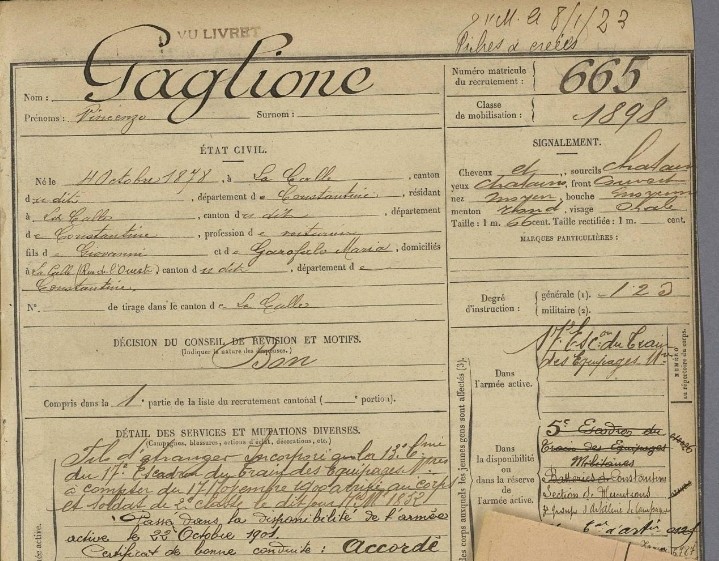 VU LIVRET
8/1/23
Fiches à créées
Nom : Gaglione
Prénoms : Vincenzo Surnom :
Numéro matricule du recrutement : 665
Classe de mobilisation : 1898
ÉTAT CIVIL.
Né le 4 Octobre 1878, à La Calle, canton
du dit, département de Constantine, résidant
à La Calle, canton du dit, département
de Constantine, profession de
fils de Giovanni et de Garofalo Maria, domiciliés
à La Calle (Rue de l'Ouest) canton du dit, département de
Constantine.
N° de tirage dans le canton de La Calle
SIGNALEMENT.
Cheveux et, sourcils chatain
yeux chatains, front ouvert
nez moyen, bouche moyenne
menton rond, visage ovale
Taille : 1 m. 66 cent. Taille rectifiée : 1 m. cent.
MARQUES PARTICULIÈRES :
Degré d'instruction : générale (1). 1 2 3
militaire (2).
DÉCISION DU CONSEIL DE RÉVISION ET MOTIFS.
(Indiquer la nature des dispenses.)
Bon
Compris dans la 1e partie de la liste du recrutement cantonal ( portion).
DÉTAIL DES SERVICES ET MUTATIONS DIVERSES.
(Campagnes, blessures, actions d'éclat, décorations, etc.)
Fils d'étranger incorporé
du 17e Escadron du train des Equipages Mres
à compter du 1900 arrivé au corps
et soldat de 2e classe le dit jour
Passé dans la disponibilité de l'armée
active le 22 Octobre 1901.
Certificat de bonne conduite : Accordé
Dans l'armée active.
17e Esc.on du Train
des Equipages Mres
Dans la disponibilité ou dans la réserve de l'armée active.
5e Escadron du
Train des Equipages
Militaires
Constantine
Section de Munitions
NUMÉRO
au répertoire du corps.
corps auxquels les jeunes gens sont affectés (3).